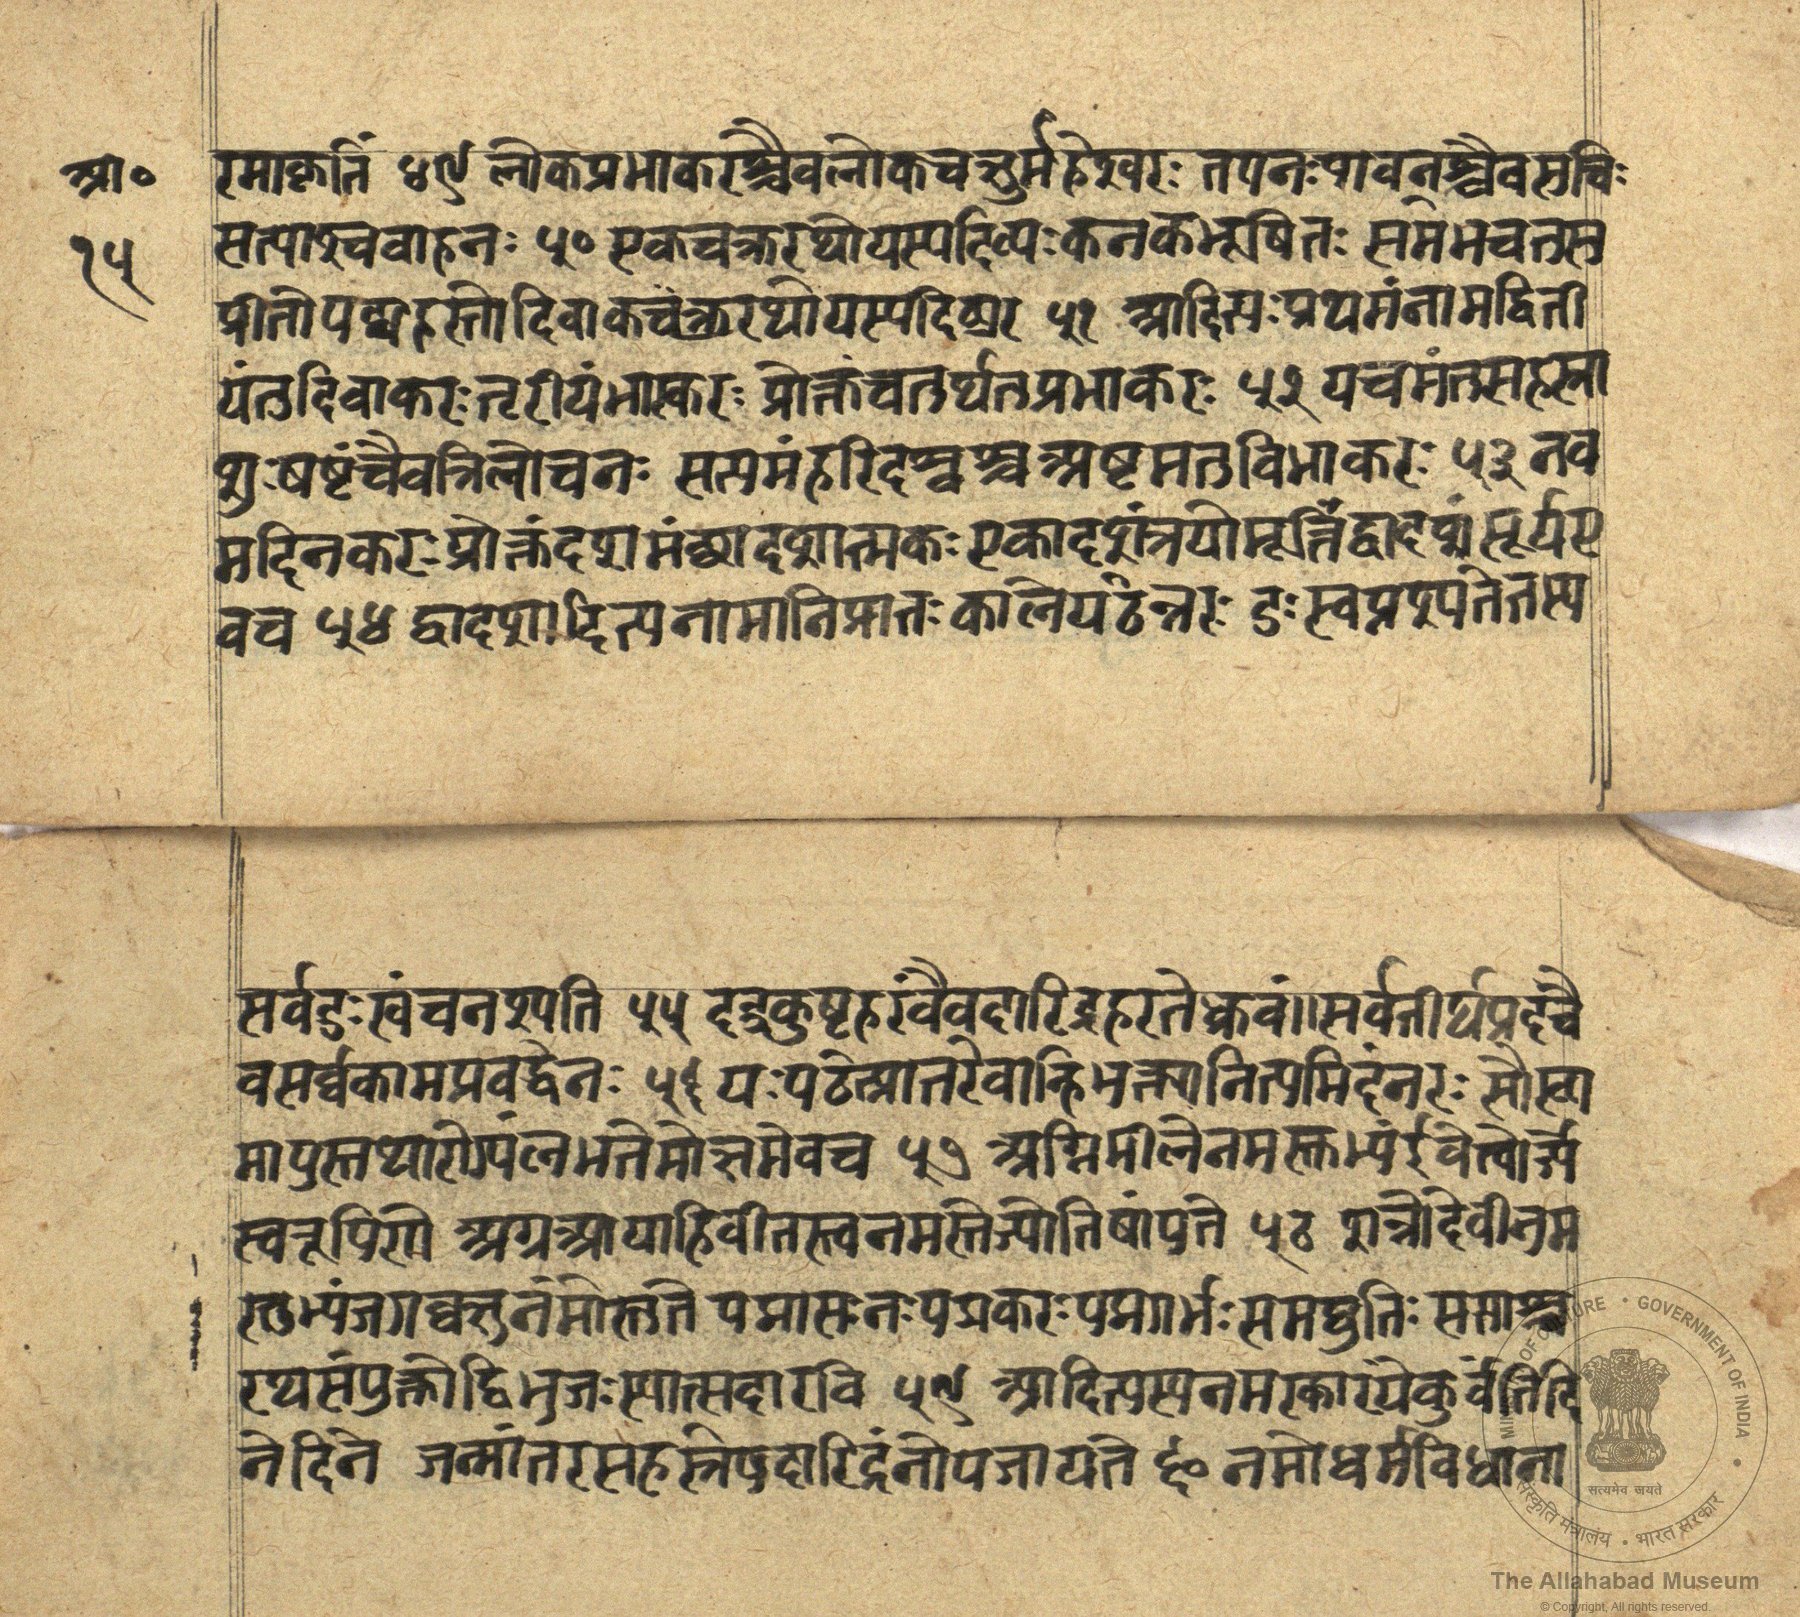 आ०
१५
रमाकृतिं ४९ लोकप्रभाकरश्चैवलोकचक्षुर्महेश्वरः तपनःपावनश्चैवसचिः
सत्याश्चवाहनः ५० एकचक्ररथोयस्यदिव्यःकनकभूषितः समेभवतुसु
प्रीतोपद्महस्तोदिवाकचंक्ररथोयस्यदिव्यर ५१ आदित्यःप्रथमंनामद्विती
यंतुदिवाकरःतृतीयंभास्करः प्रोक्तंचतुर्थतुप्रभाकरः ५२ पचमंतुसहस्रा
शुःषष्टंचैवत्रिलोचनः सप्तमंहरिदश्वश्चअष्टमतुविभाकरः ५३ नव
मदिनकरःप्रोक्तंदशमंद्वादशात्मकः एकादशंत्रयीमूर्त्तिंद्वादशंसूर्यए
वच ५४ द्वादशादित्यनामानिप्रातःकालेयठेन्नरः दुःस्वप्ननश्यतेतस्य
सर्वदुःखंचनश्यति ५५ दद्रुकुष्टहरंचैवदारिद्रहरतेध्रुवं॥सर्वतीर्थप्रदंचै
वसर्व्वकामप्रवर्द्धनः ५६ यःपठेत्प्रातरेवान्हिभक्त्यानित्यमिदंनरः सौख्या
मायुस्तथारोग्यंलभतेमोक्षमेवच ५७ अग्निमीलेनमस्तुभ्यंईषेत्वोर्ज्जे
स्वरूपिणे अग्नआयाहिवीतस्त्वनमस्तेज्योतिषांपते ५८ शन्नोदेवीनुम
स्तुभ्यंजगच्चक्षुर्नमोस्तुते पद्मासनःपद्मकरःपद्मगर्भःसमद्युतिः सप्ताश्व
रथसंयुक्तोद्विभुजःस्यात्सदारवि ५९ आदित्यस्यनमस्कारंयेकुर्वंतिदि
नेदिने जन्मांतरसहस्रेषुदारिद्रंनोपजायते ६० नमोधर्मविधाना
MINISTRY OF CULTURE • GOVERNMENT OF INDIA
सत्यमेव जयते
संस्कृति मंत्रालय • भारत सरकार
The Allahabad Museum
© Copyright, All rights reserved.